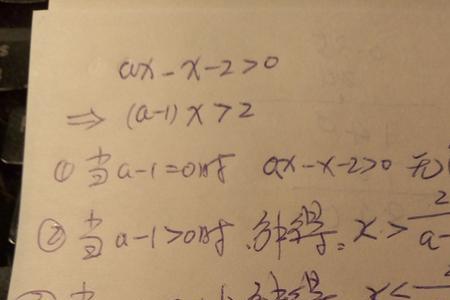 ax-x-2>0
⇒ (a-1)x>2
① 当a-1=0时 ax-x-2>0 无
② 当a-1>0时, 解得: x> 2/a-
当 解得 x<